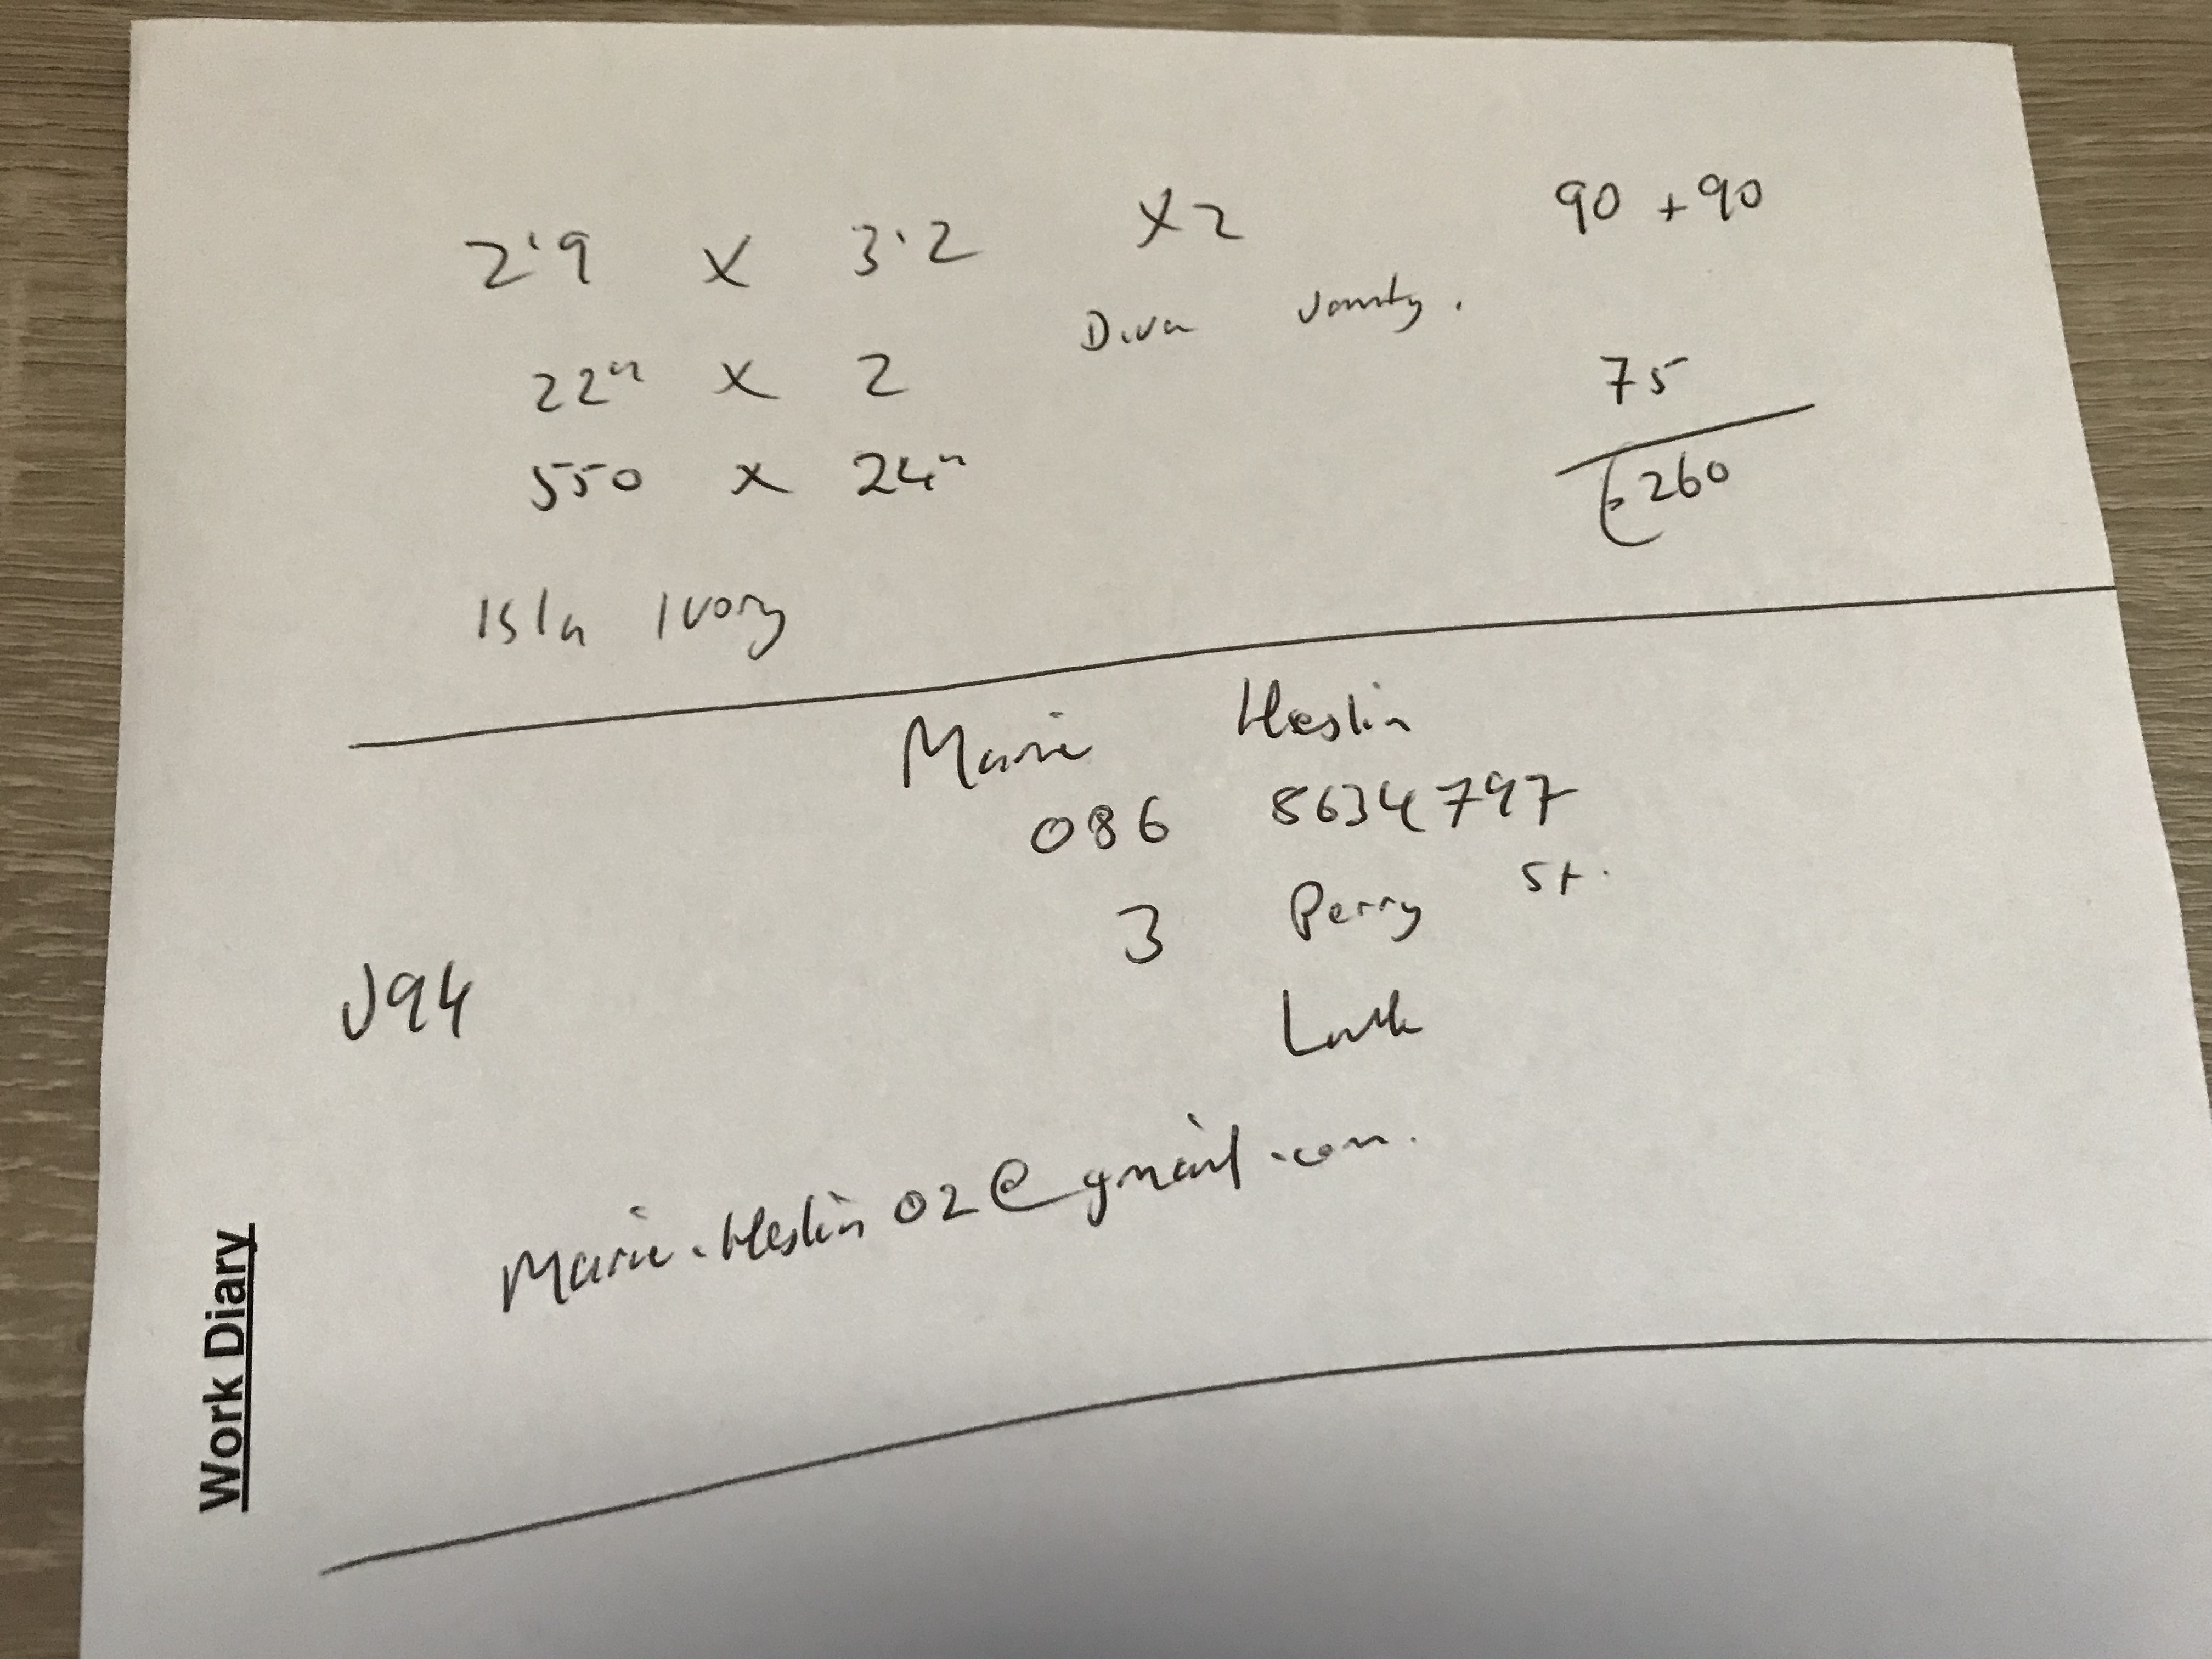 2'9 x 3'2 x2 90 + 90
Diva Vanity.
22" x 2 75
550 x 24" €260
Isla Ivory
Marie Heslin
086 8634797
3 Perry St.
J94
Marie.Heslin02@gmail.com.
Work Diary